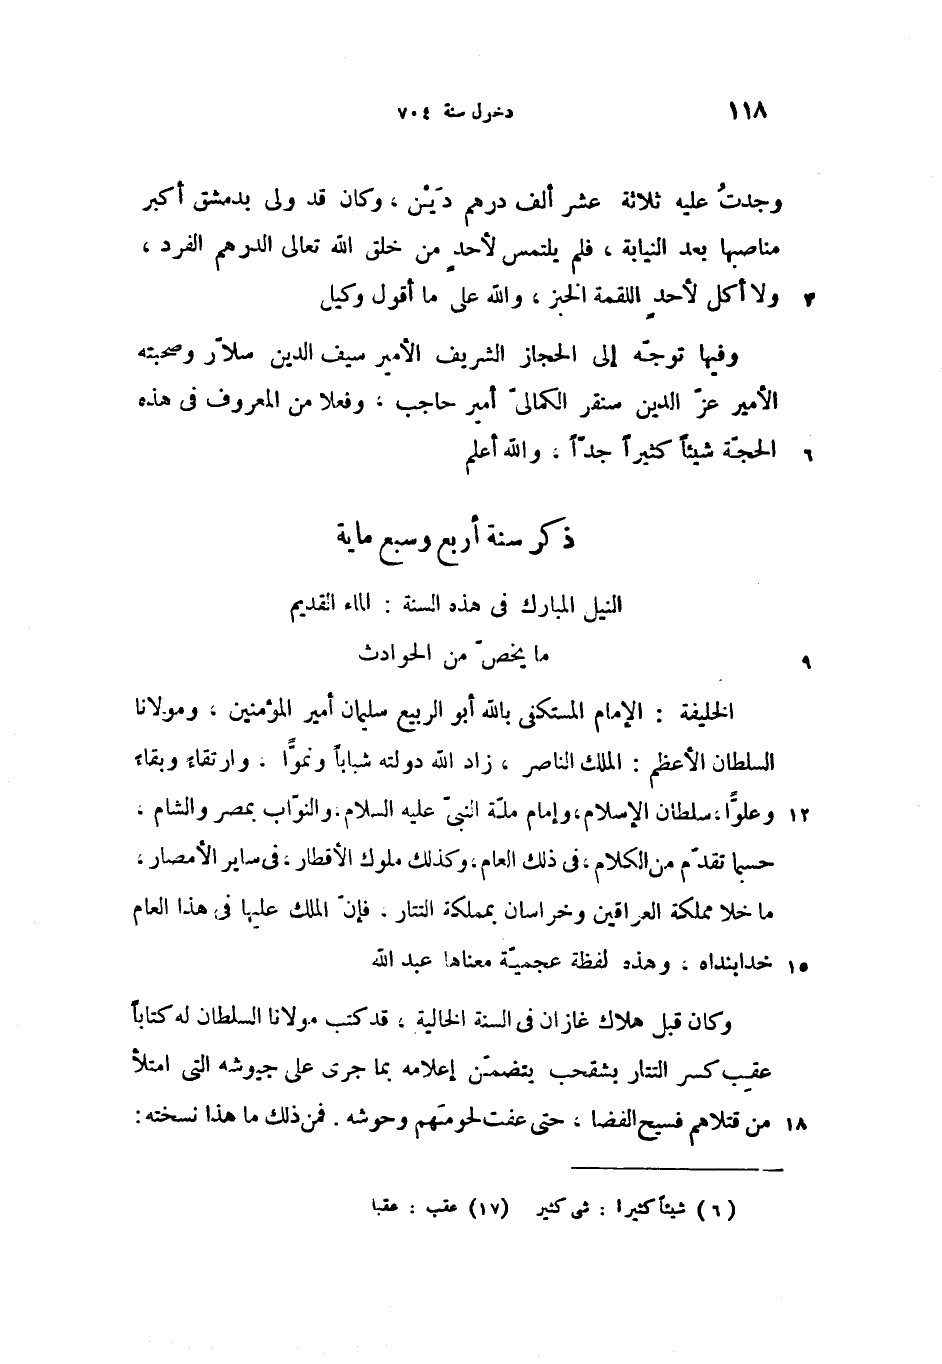 ١١٨ دخول سنة ٧٠٤
وجدتُ عليه ثلاثة عشر ألف درهم دَيْن ، وكان قد ولى بدمشق أكبر
مناصبها بعد النيابة ، فلم يلتمس لأحدٍ من خلق الله تعالى الدرهم الفرد ،
٣ ولا أكل لأحدٍ اللقمة الخبز ، والله على ما أقول وكيل
وفيها توجّه إلى الحجاز الشريف الأمير سيف الدين سلاّر وصحبته
الأمير عزّ الدين سنقر الكمالىّ أمير حاجب ، وفعلا من المعروف فى هذه
٦ الحجّة شيئاً كثيراً جدّاً ، والله أعلم
ذكر سنة أربع وسبع ماية
النيل المبارك فى هذه السنة : الماء القديم
٩ ما يخصّ من الحوادث
الخليفة : الإمام المستكفى بالله أبو الربيع سليمان أمير المؤمنين ، ومولانا
السلطان الأعظم : الملك الناصر ، زاد الله دولته شباباً ونموًّا ، وارتقاء وبقاء
١٢ وعلوًّا ، سلطان الإسلام ، وإمام ملّة النبىّ عليه السلام . والنوّاب بمصر والشام ،
حسبما تقدّم من الكلام ، فى ذلك العام ، وكذلك ملوك الأقطار ، فى ساير الأمصار ،
ما خلا مملكة العراقين وخراسان بمملكة التتار . فإنّ الملك عليها فى هذا العام
١٥ خدابنداه ، وهذه لفظة عجميّة معناها عبد الله
وكان قبل هلاك غازان فى السنة الخالية ، قد كتب مولانا السلطان له كتاباً
عقيب كسر التتار بشقحب يتضمّن إعلامه بما جرى على جيوشه التى امتلأ
١٨ من قتلاهم فسيح الفضا ، حتى عفت لحومَهم وحوشه . فمن ذلك ما هذا نسخته :
(٦) شيئاً كثيرا : شى كثير (١٧) عقب : عقبا